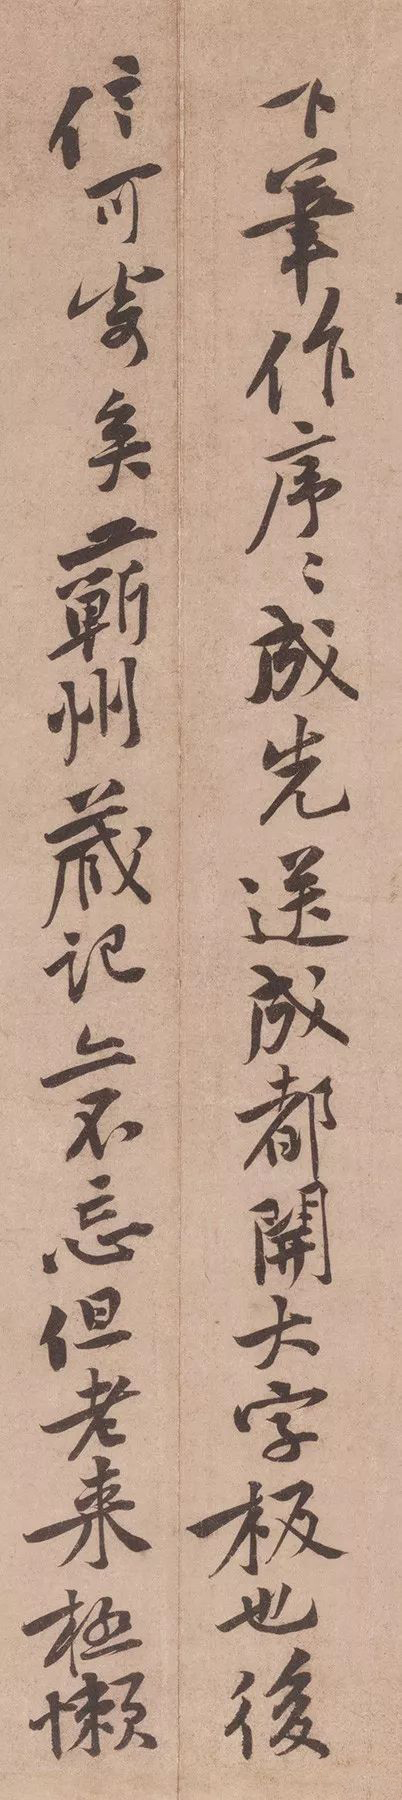 下筆作序〻成先送成都開大字板也後
信可寄矣蘄州藏記亦不忘但老来極懶